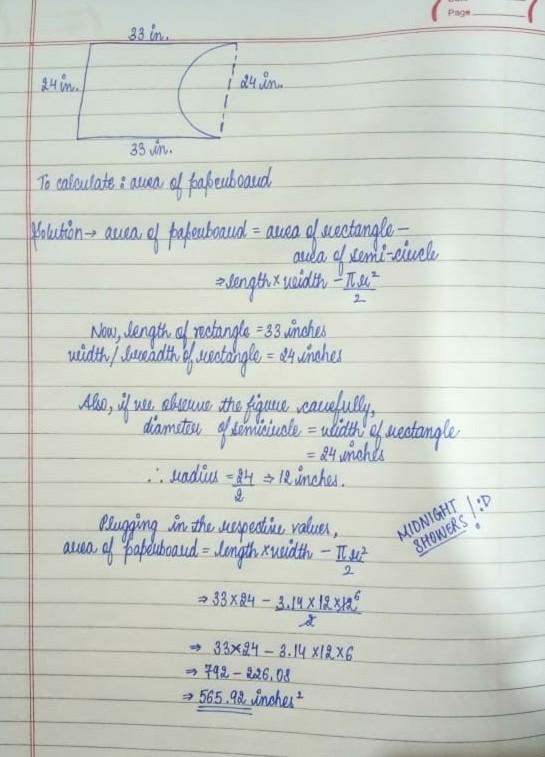 Page
33 in.
24 in.
24 in.
33 in.
To calculate : area of paperboard
Solution → area of paperboard = area of rectangle –
area of semi-circle
⇒ length × width – πr²/2
Now, length of rectangle = 33 inches
width / breadth of rectangle = 24 inches
Also, if we observe the figure carefully,
diameter of semicircle = width of rectangle
= 24 inches
∴ radius = 24/2 ⇒ 12 inches.
MIDNIGHT
SHOWERS ! :D
Plugging in the respective values,
area of paperboard = length × width – πr²/2
⇒ 33×24 – 3.14 × 12 × 12 6/2
⇒ 33×24 – 3.14 × 12 × 6
⇒ 792 – 226.08
⇒ 565.92 inches²